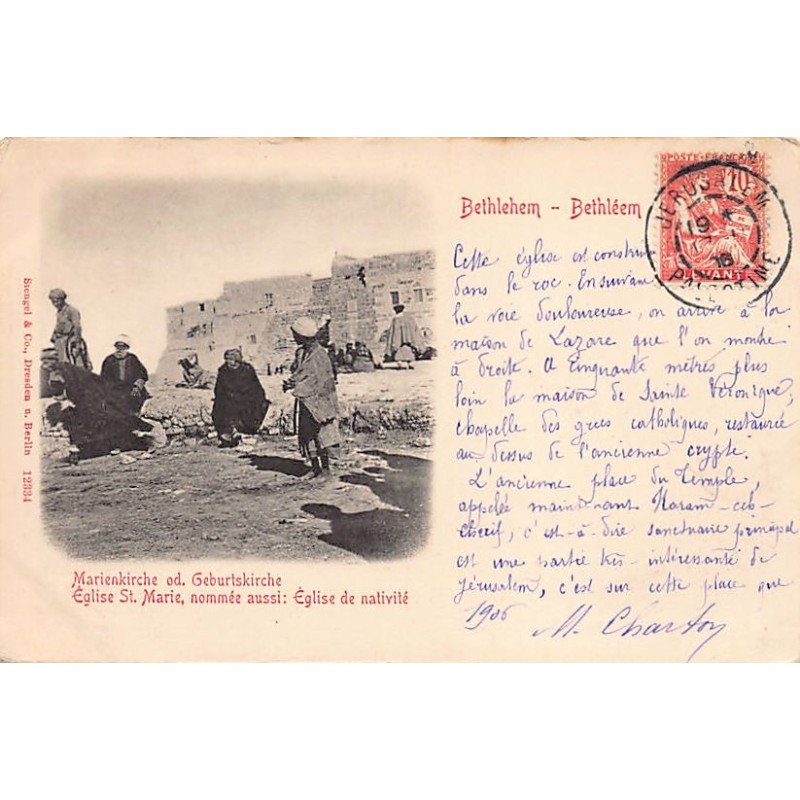 Bethlehem - Bethléem
POSTE FRANÇAISE
10
LEVANT
JERUSALEM
19
PALESTINE
Cette église est construite
dans le roc. En suivant
la voie douloureuse, on arrive à la
maison de Lazare que l'on montre
à droite. A Cinquante mètres plus
loin la maison de Sainte Véronique,
chapelle des grecs catholiques, restaurée
au-dessus de l'ancienne crypte.
L'ancienne place du Temple,
appelée maintenant Haram-ech-
cherif, c'est-à-dire sanctuaire principal
est une partie très-intéressante de
Jérusalem, c'est sur cette place que
1906 M. Charton
Stengel & Co., Dresden u. Berlin 12334
Marienkirche od. Geburtskirche
Église St. Marie, nommée aussi: Église de nativité